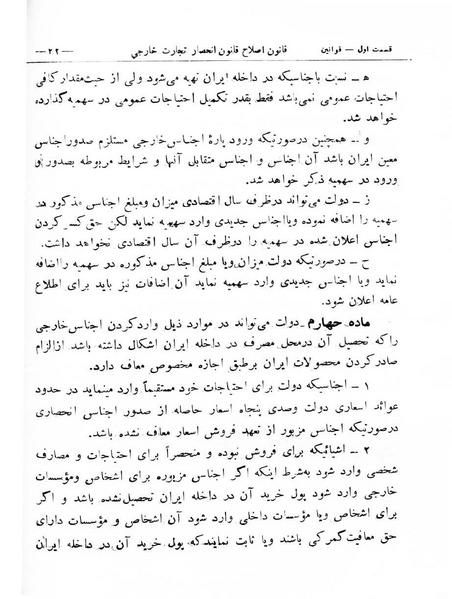 قسمت اول — قوانین قانون اصلاح قانون انحصار تجارت خارجی —۲۲—
ه‍ ـ نسبت باجناسیکه در داخله ایران تهیه می‌شود ولی از حیث‌مقدار کافی
احتیاجات عمومی نمی‌باشد فقط بقدر تکمیل احتیاجات عمومی در سهمیه گذارده
خواهد شد.
و ـ همچنین درصورتیکه ورود پارهٔ اجناس خارجی مستلزم صدور اجناس
معین ایران باشد آن اجناس و اجناس متقابل آنها و شرایط مربوطه بصدور و
ورود در سهمیه ذکر خواهد شد.
ز ـ دولت می‌تواند درظرف سال اقتصادی میزان ومبلغ اجناس مذکور در
سهمیه را اضافه نموده ویااجناس جدیدی وارد سهمیه نماید لکن حق کسر کردن
اجناس اعلان شده در سهمیه را درظرف آن سال اقتصادی نخواهد داشت.
ح ـ درصورتیکه دولت میزان ویا مبلغ اجناس مذکوره در سهمیه رااضافه
نماید ویا اجناس جدیدی وارد سهمیه نماید آن اضافات نیز باید برای اطلاع
عامه اعلان شود.
ماده چهارم ـ دولت می‌تواند در موارد ذیل واردکردن اجناس خارجی
راکه تحصیل آن درمحل مصرف در داخله ایران اشکال داشته باشد ازالزام
صادرکردن محصولات ایران برطبق اجازه مخصوص معاف دارد.
۱ ـ اجناسیکه دولت برای احتیاجات خود مستقیماً وارد مینماید در حدود
عوائد اسعاری دولت وصدی پنجاه اسعار حاصله از صدور اجناس انحصاری
درصورتیکه اجناس مزبور از تعهد فروش اسعار معاف نشده باشد.
۲ ـ اشیائیکه برای فروش نبوده و منحصراً برای احتیاجات و مصارف
شخصی وارد شود به‌شرط اینکه اگر اجناس مزبوره برای اشخاص ومؤسسات
خارجی وارد شود پول خرید آن در داخله ایران تحصیل‌نشده باشد و اگر
برای اشخاص ویا مؤسسات داخلی وارد شود آن اشخاص و مؤسسات دارای
حق معافیت‌گمرکی باشند ویا ثابت نمایندکه پول خرید آن در داخله ایران